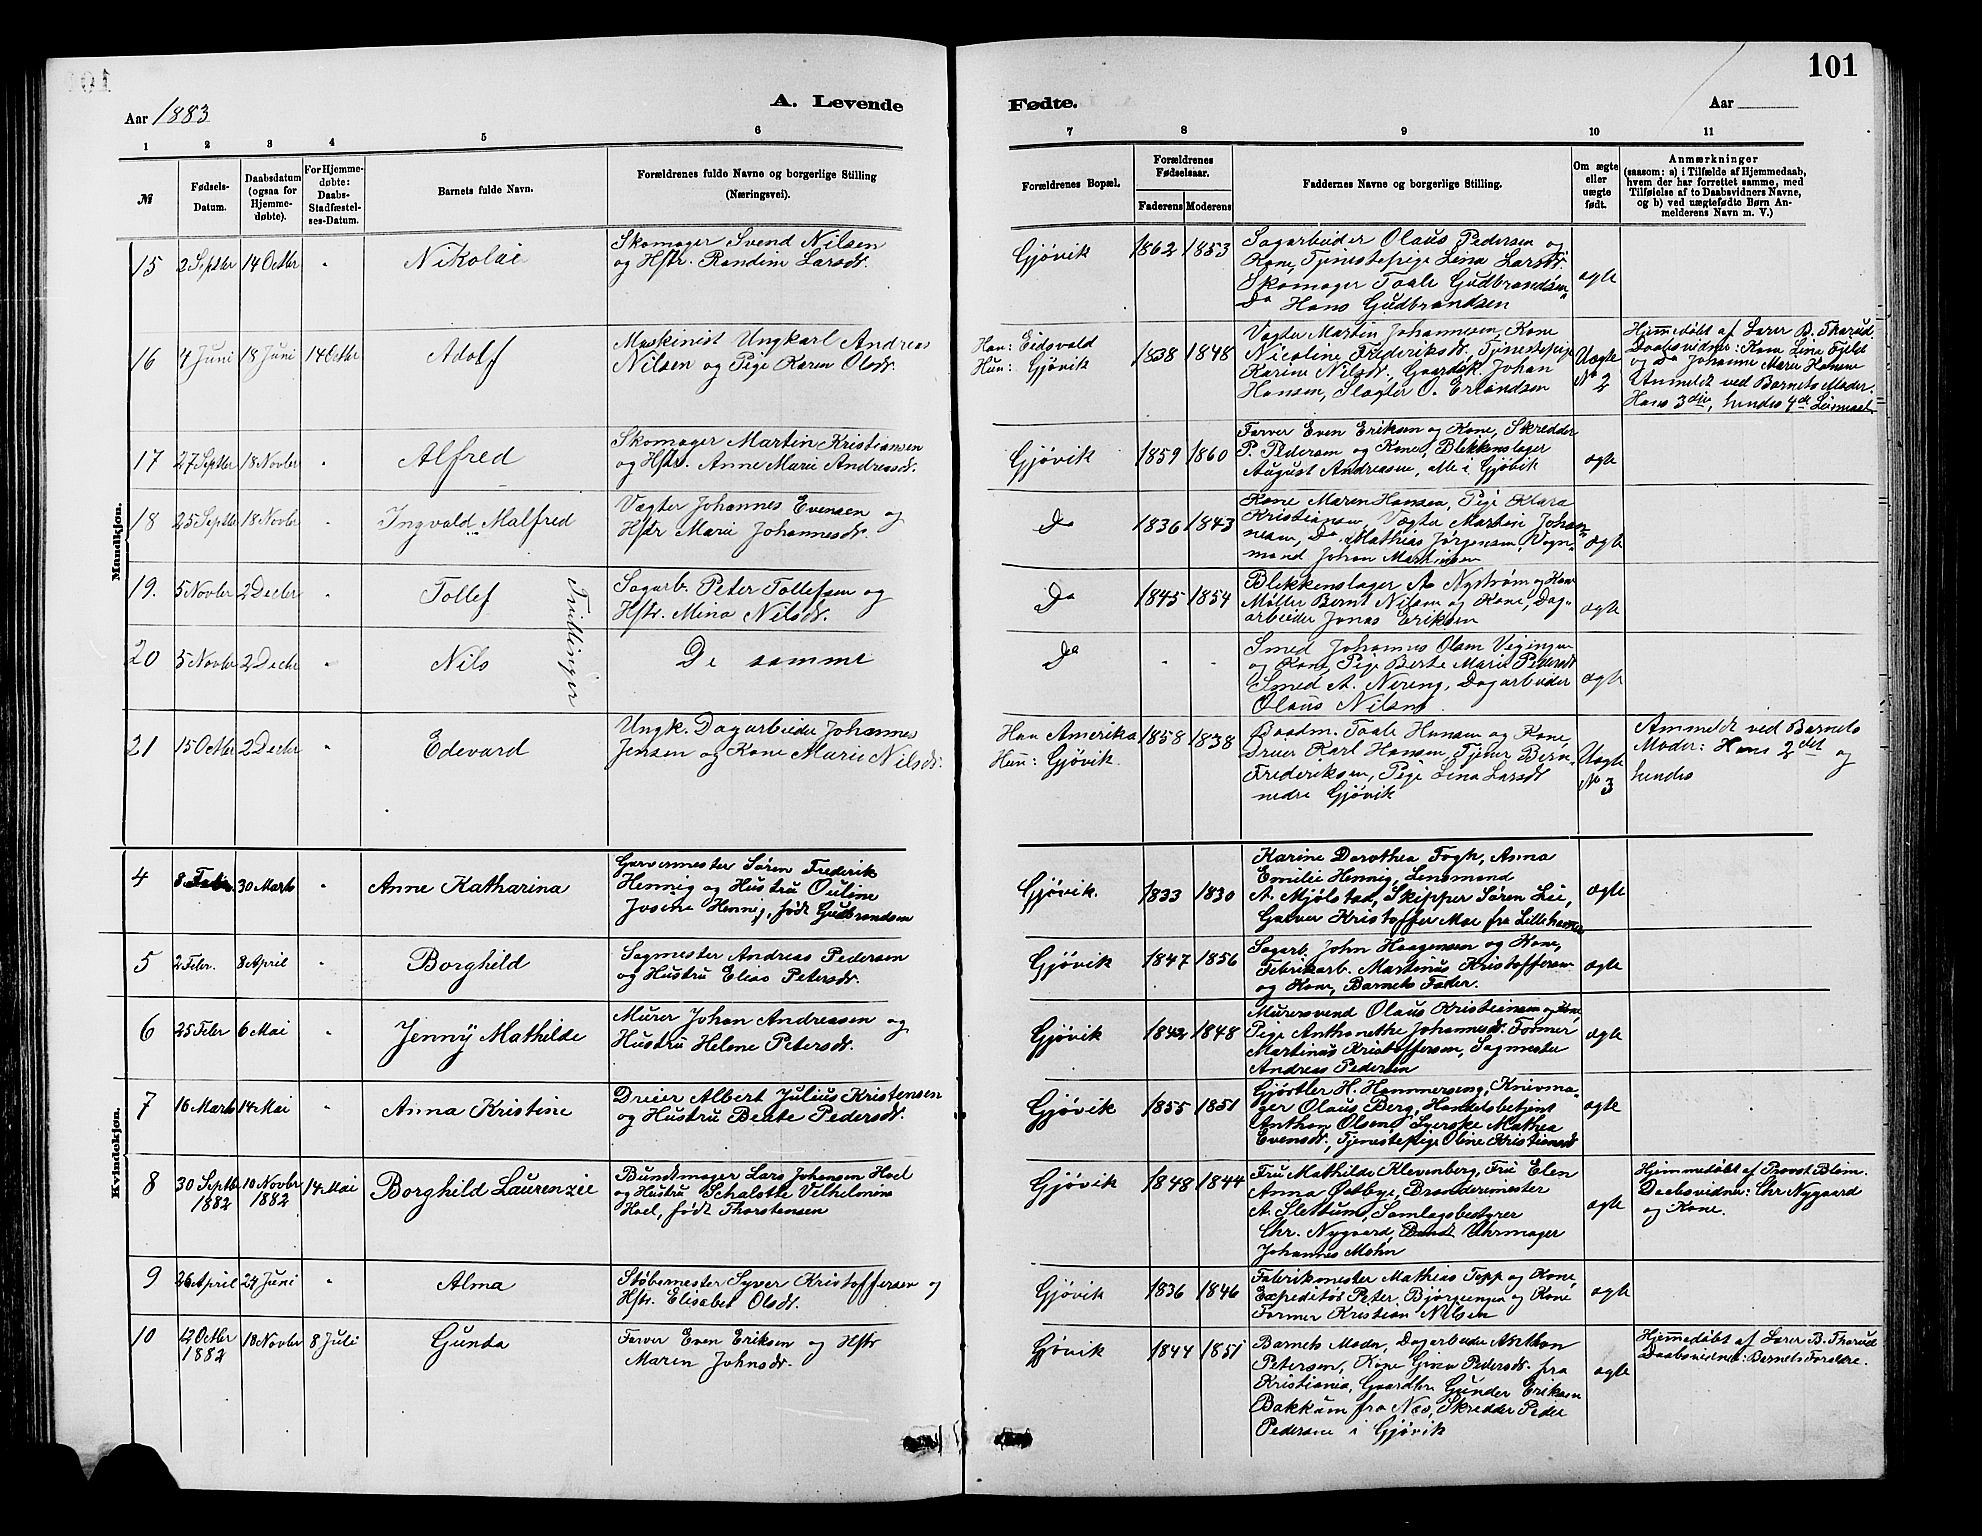 101
Aar 1883
A. Levende
Fødte.
Aar
1 2 3 4 5 6 7 8 9 10 11
№
Fødsels-
Datum.
Daabsdatum
(ogsaa for
Hjemme-
døbte).
For Hjemme-
døbte:
Daabs-
Stadfæstel-
ses-Datum.
Barnets fulde Navn.
Forældrenes fulde Navne og borgerlige Stilling
(Næringsvei).
Forældrenes Bopæl.
Forældrenes
Fødselsaar.
Faderens Moderens
Faddernes Navne og borgerlige Stilling.
Om ægte
eller
uægte
født.
Anmærkninger
(saasom: a) i Tilfælde af Hjemmedaab,
hvem der har forrettet samme, med
Tilføielse af to Daabsvidners Navne,
og b) ved uægtefødte Børn An-
melderens Navn m. V.)
Mandkjøn.
15 2 Septbr 14 Octbr " Nikolai
Skomager Svend Nilsen
og Hstr. Randine Larsdr.
Gjøvik 1862 1853
Sagarbeider Olaus Pedersen og
Kone, Tjenestepige Lina Larsdr.
Skomager Taale Gudbrandsen
Do Hans Gudbrandsen
ægte
16 4 Juni 18 Juni 14 Octbr Adolf
Maskinist Ungkarl Andreas
Nilsen og Pige Karen Olsdr.
Han: Eidsvold
Hun: Gjøvik
1838 1848
Vagter Martin Johannesen, Kone
Nicoline Frederiksdr, Tjenestepige
Karine Nilsdr. Gaardsk. Johan
Hansen, Slagter O. Erlandsen
Uægte
No 2
Hjemmedøbt af Lærer B. Tharud.
Daabsvidner: Kone Lina Fjeld
og Do Johanne Marie Hansen
Anmeldt ved Barnets Moder.
Hans 3die, hendes 4de Leiermaal
17 27 Septbr 18 Novbr " Alfred
Skomager Martin Kristiansen
og Hstr. Anne Marie Andreasdr.
Gjøvik 1859 1860
Farver Even Eriksen og Kone, Skredder
P. Pedersen og Kone, Blikkenslager
August Andreasen, alle i Gjøvik
ægte
18 25 Septbr 18 Novbr " Ingvald Malfred
Vagter Johannes Evensen og
Hstr Marie Johannesdr.
Do 1836 1843
Kone Maren Hansen, Pige Klara
Kristiansen, Vagter Martin Johan-
nesen, Do Mathias Jørgensen, Vogn-
mand Johan Martinsen
ægte
19. 5 Novbr 2 Decbr " Tollef
Tvillinger
Sagarb. Peter Tollefsen og
Hstr. Mina Nilsdr.
Do 1845 1854
Blikkenslager A. Nystrøm og Kone
Møller Bernt Nilsen og Kone, Dag-
arbeider Jonas Eriksen
ægte
20 5 Novbr 2 Decbr " Nils
De samme
Do - -
Smed Johannes Olsen
og Kone, Pige Berte Marie Pedersdr
Smed A. Nereng, Dagarbeider
Olaus Nilsen.
ægte
21 15 Octbr 2 Decbr Edevard
Ungk. Dagarbeider Johannes
Jensen og Kone Marie Nilsdr.
Han Amerika
Hun: Gjøvik.
1858 1838
Baadm. Taale Hansen og Kone,
Dreier Karl Hansen, Tjener Bern.
Frederiksen, Pige Lina Larsdr
nedre Gjøvik
Uægte
No 3
Anmeldt ved Barnets
Moder: Hans 2det og
hendes
Kvindekjøn.
4 8 Febr. 30 Marts " Anne Katharina
Garvermester Søren Frederik
Hennig og Hustru Ouline
Josine Hennig, født Gudbrandsen
Gjøvik. 1833 1830
Karine Dorothea Fogh, Anna
Emilie Hennig, Lensmand
A. Mjølstad, Skipper Søren Lie,
Garver Kristoffer Moe fra Lillehammer
ægte
5 2 Febr. 8 April " Borghild
Sagmester Andreas Pedersen
og Hustru Elias Petersdr.
Gjøvik 1847 1856
Sagarb. John Haagensen og Kone,
Fabrikarb. Martinus Kristoffersen
og Kone, Barnets Fader.
ægte
6 25 Febr 6 Mai " Jenny Mathilde
Murer Johan Andreasen og
Hustru Helene Petersdr.
Gjøvik 1842 1848
Murersvend Olaus Kristiansen og Kone,
Pige Anthonethe Johannesdr. Former
Martinus Kristoffersen, Sagmester
Andreas Pedersen
ægte
7 16 Marts 14 Mai " Anna Kristine
Dreier Albert Julius Kristensen
og Hustru Beate Pedersdr.
Gjøvik 1855 1851
Gjørtler H. Hammerseng, Knivma-
ger Olaus Berg, Handelsbetjent
Anthon Olsen, Syerske Mathea
Evensdr, Tjenestepige Oline Kristiansdr
ægte
8 30 Septbr 1882 10 Novbr 1882 14 Mai Borghild Laurenzie
Bundtmager Lars Johansen Hoel
og Hustru Schalotte Vilhelmine
Hoel, født Thorstensen
Gjøvik 1848 1844
Fru Mathilde Klevenberg, Fru Elen
Anna Østbye, Brænderimester
A. Slettum, Samlagsbestyrer
Chr. Nygaard, Uhrmager
Johannes Mohn
ægte
Hjemmedøbt af Provst Blom.
Daabsvidner: Chr Nygaard
og Kone.
9 26 April 24 Juni " Alma
Støbemester Syver Kristoffersen og
Hstr. Elisabet Olsdr.
Gjøvik 1836 1846
Fabrikmester Mathias Topp og Kone,
Expeditør Peter Bjørnsengen og Kone
Former Kristian Nilsen
ægte
10 12 Octbr 1882 18 Novbr 8 Juli Gunda
Farver Even Eriksen og Hstr
Maren Johnsdr.
Gjøvik 1844 1851
Barnets Moder, Dagarbeider Anthon
Petersen, Kone Gina Pedersdr. fra
Kristiania, Gaardbr. Gunder Eriksen
Bakkum fra Næs, Skredder Peder
Pedersen i Gjøvik
ægte
Hjemmedøbt af Lærer B. Tharud
Daabsvidner: Barnets Forældre.